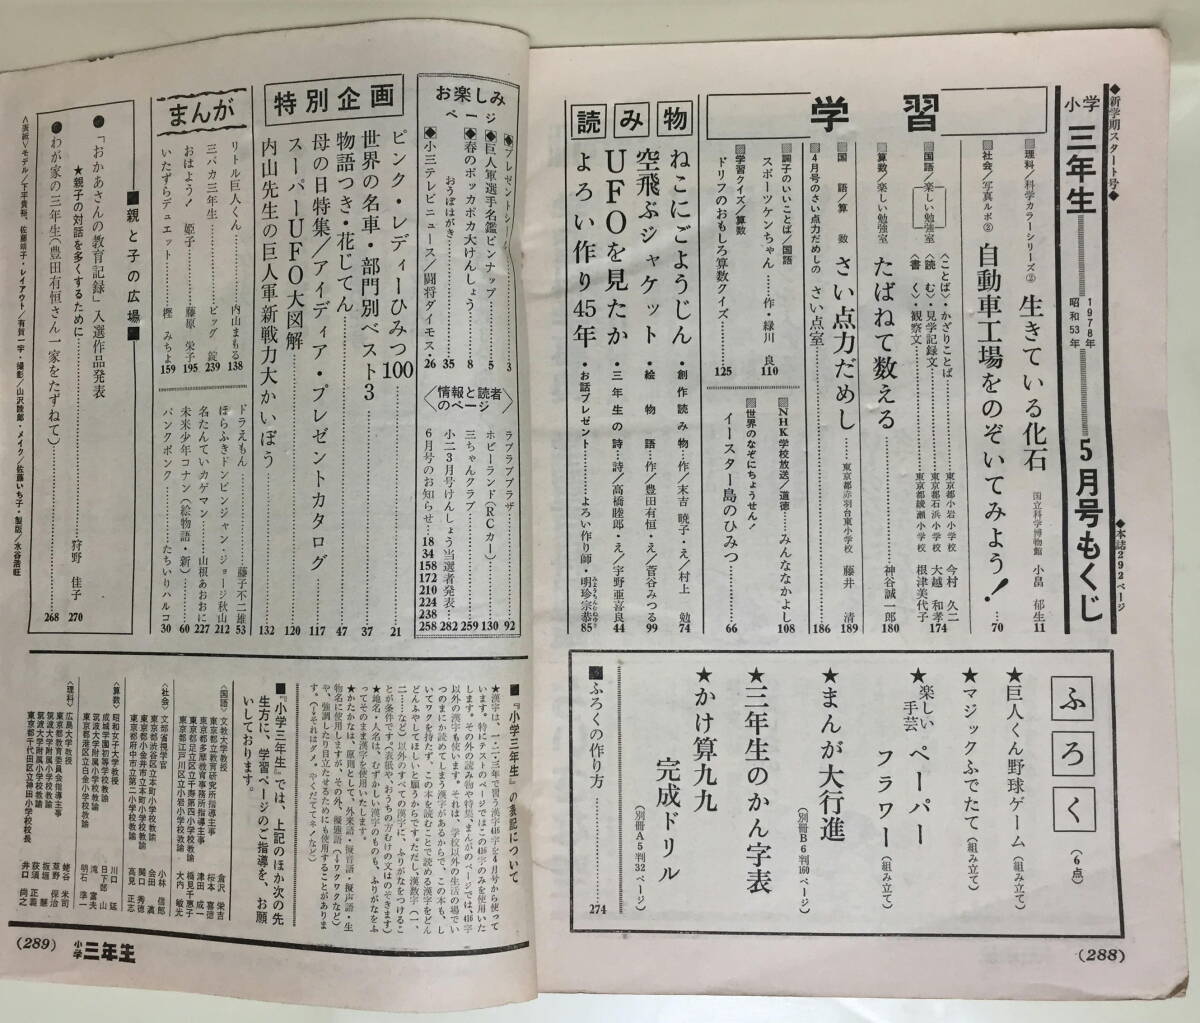 ◆新学期スタート号◆
小学三年生
1978年
昭和53年
5月号もくじ
◆本誌292ページ
学習
▨理科/科学カラーシリーズ②
生きている化石
国立科学博物館 小畠 郁生 11
▨社会/写真ルポ②
自動車工場をのぞいてみよう! 70
▨国語/楽しい勉強室
〈ことば〉・かざりことば
東京都小岩小学校 今村 久二
〈読む〉・見学記録文
東京都石浜小学校 大越 和孝 174
〈書く〉・観察文
東京都綾瀬小学校 根津美代子
▨算数/楽しい勉強室
たばねて数える
神谷誠一郎 180
▨国語/算数
さい点力だめし
東京都赤羽台東小学校 藤井 清 189
▨4月号のさい点力だめしの さい点室 186
▨調子のいいことば/国語
スポーツケンちゃん・作・緑川 良 110
▨学習クイズ/算数
ドリフのおもしろ算数クイズ 125
▨NHK学校放送/道徳
みんななかよし 108
▨世界のなぞにちょうせん!
イースター島のひみつ 66
読み物
ねこにごようじん・創作読み物・作/末吉 暁子・え/村上 勉 74
空飛ぶジャケット・絵物語・作/豊田有恒・え/菅谷みつる 99
UFOを見たか・三年生の詩・詩/高橋睦郎・え/宇野亜喜良 44
よろい作り45年・お話プレゼント よろい作り師・明珍宗恭 85
ふろく
(6点)
★巨人くん野球ゲーム(組み立て)
★マジックふでたて(組み立て)
★楽しい手芸 ペーパーフラワー(組み立て)
★まんが大行進
(別冊B6判160ページ)
★三年生のかん字表
★かけ算九九 完成ドリル
(別冊A5判32ページ)
◆ふろくの作り方 274
(288)
お楽しみページ
◆プレゼントシール 3
◆巨人軍選手名鑑ピンナップ 5
◆春のポッカポカ大けんしょう 8
おうぼはがき 35
◆小三テレビニュース/闘将ダイモス・ 26
〈情報と読者のページ〉
ラブラブプラザ 92
ホビーランド(RCカー) 130
三ちゃんクラブ 259
小二3月号けんしょう当選者発表 282
6月号のお知らせ 18 34 158 172 210 224 238 258
特別企画
ピンク・レディーひみつ100 21
世界の名車・部門別ベスト3 37
物語つき・花じてん 47
母の日特集/アイディア・プレゼントカタログ 117
スーパーUFO大図解 120
内山先生の巨人軍新戦力大かいぼう 132
まんが
リトル巨人くん 内山まもる 138
三バカ三年生 ビッグ 錠 239
おはよう!姫子 藤原 栄子 195
いたずらデュエット 樫 みちよ 159
ドラえもん 藤子不二雄 53
ほらふきドンビンジャン・ジョージ秋山 212
名たんていカゲマン 山根あおおに 227
未来少年コナン(絵物語・新) 60
パンクポンク たちいりハルコ 30
■親と子の広場■
●「おかあさんの教育記録」入選作品発表
★親子の対話を多くするために 狩野 佳子 270
●わが家の三年生(豊田有恒さん一家をたずねて) 268
〈表紙〉モデル/下平貴裕、佐藤靖子・レイアウト/有賀一宇・撮影/山沢睦郎・メイク/佐藤いち子・製版/水谷浩旺
■『小学三年生』の表記について
★漢字は、一・二・三年で習う漢字416字を4月号から使っています。特にテストのページではこの416字のみを使用いたします。その外の読み物や特集、まんがのページでは、416字以外の漢字も使います。
■『小学三年生』では、上記のほか次の先生方に、学習ページのご指導を、お願いしております。
〈国語〉
文教大学教授 倉沢 栄吉
東京都立教育研究所指導主事 桜本 喜徳
東京都多摩教育事務所指導主事 津田 成一
東京都足立区立千寿第四小学校教諭 橋見千惠子
東京都江戸川区立小岩小学校教諭 大内 敏光
〈社会〉
文部省視学官 小林 信郎
東京都渋谷区立本町小学校教諭
東京都小金井市立本町小学校教諭
東京都府中市立第二小学校教諭 高見 正志
〈算数〉
昭和女子大学教授 川口 延
成城学園初等学校教諭 日下部 山
筑波大学附属小学校教諭 滝 富夫
東京都港区立白金小学校教諭 明石 準一
〈理科〉
広島大学教授 蛯谷 米司
東京都教育委員会指導主事 草野 保治
筑波大学附属小学校教諭 板垣 慧
筑波大学附属小学校教諭 荻須 正義
東京都千代田区立神田小学校校長 井口 尚之
(289) 小学三年生